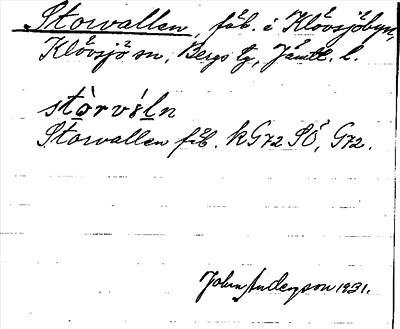 Storvallen, fäb. i Klövsjöbyn,
Klövsjö sn, Bergs tg, Jämtl. l.
stòrvàln
Storvallen fäb. kG72SÖ, G72.
John Anderson 1931.